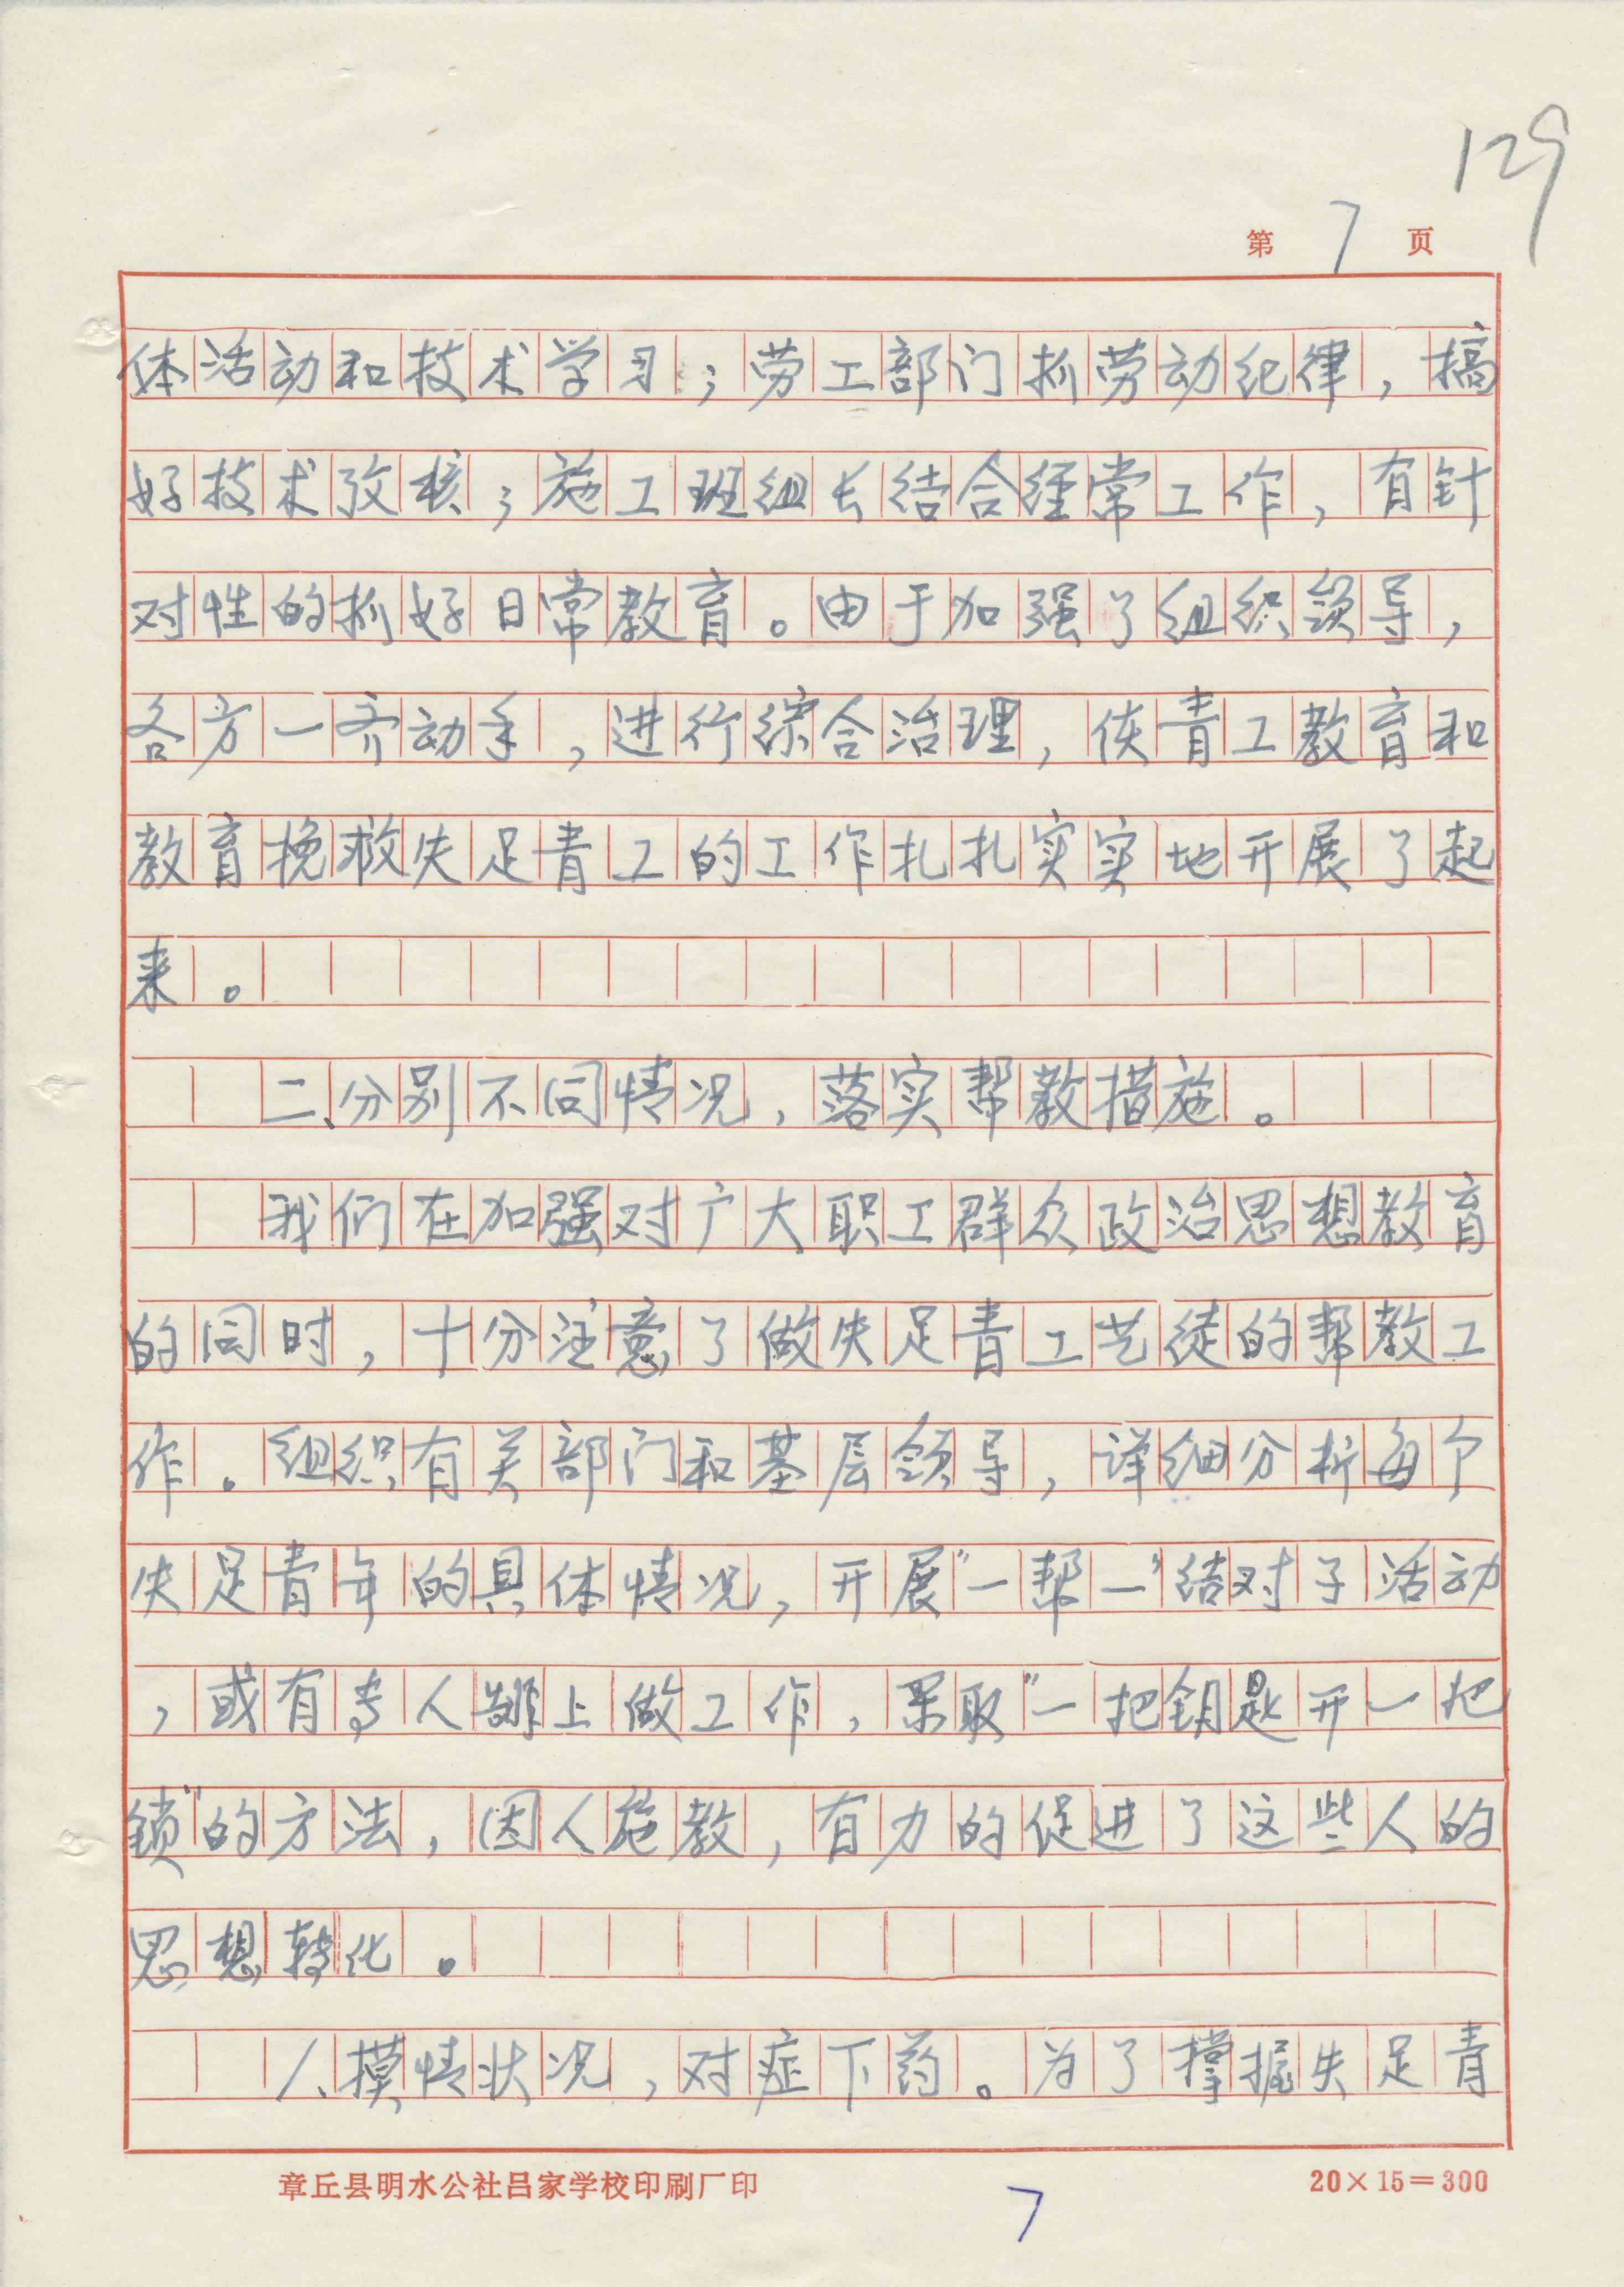 129
第 7 页
体活动和技术学习；劳工部门抓劳动纪律，搞
好技术攷核；施工班组长结合经常工作，有针
对性的抓好日常教育。由于加强了组织领导，
各方一齐动手，进行综合治理，使青工教育和
教育挽救失足青工的工作扎扎实实地开展了起
来。
二、分别不同情况，落实帮教措施。
我们在加强对广大职工群众政治思想教育
的同时，十分注意了做失足青工艺徒的帮教工
作。组织有关部门和基层领导，详细分析每个
失足青年的具体情况，开展“一帮一”结对子活动
，或有专人 上做工作，采取“一把钥匙开一把
锁”的方法，因人施教，有力的促进了这些人的
思想转化。
1、摸情状况，对症下药。为了撑握失足青
章丘县明水公社吕家学校印刷厂印
20×15＝300
7